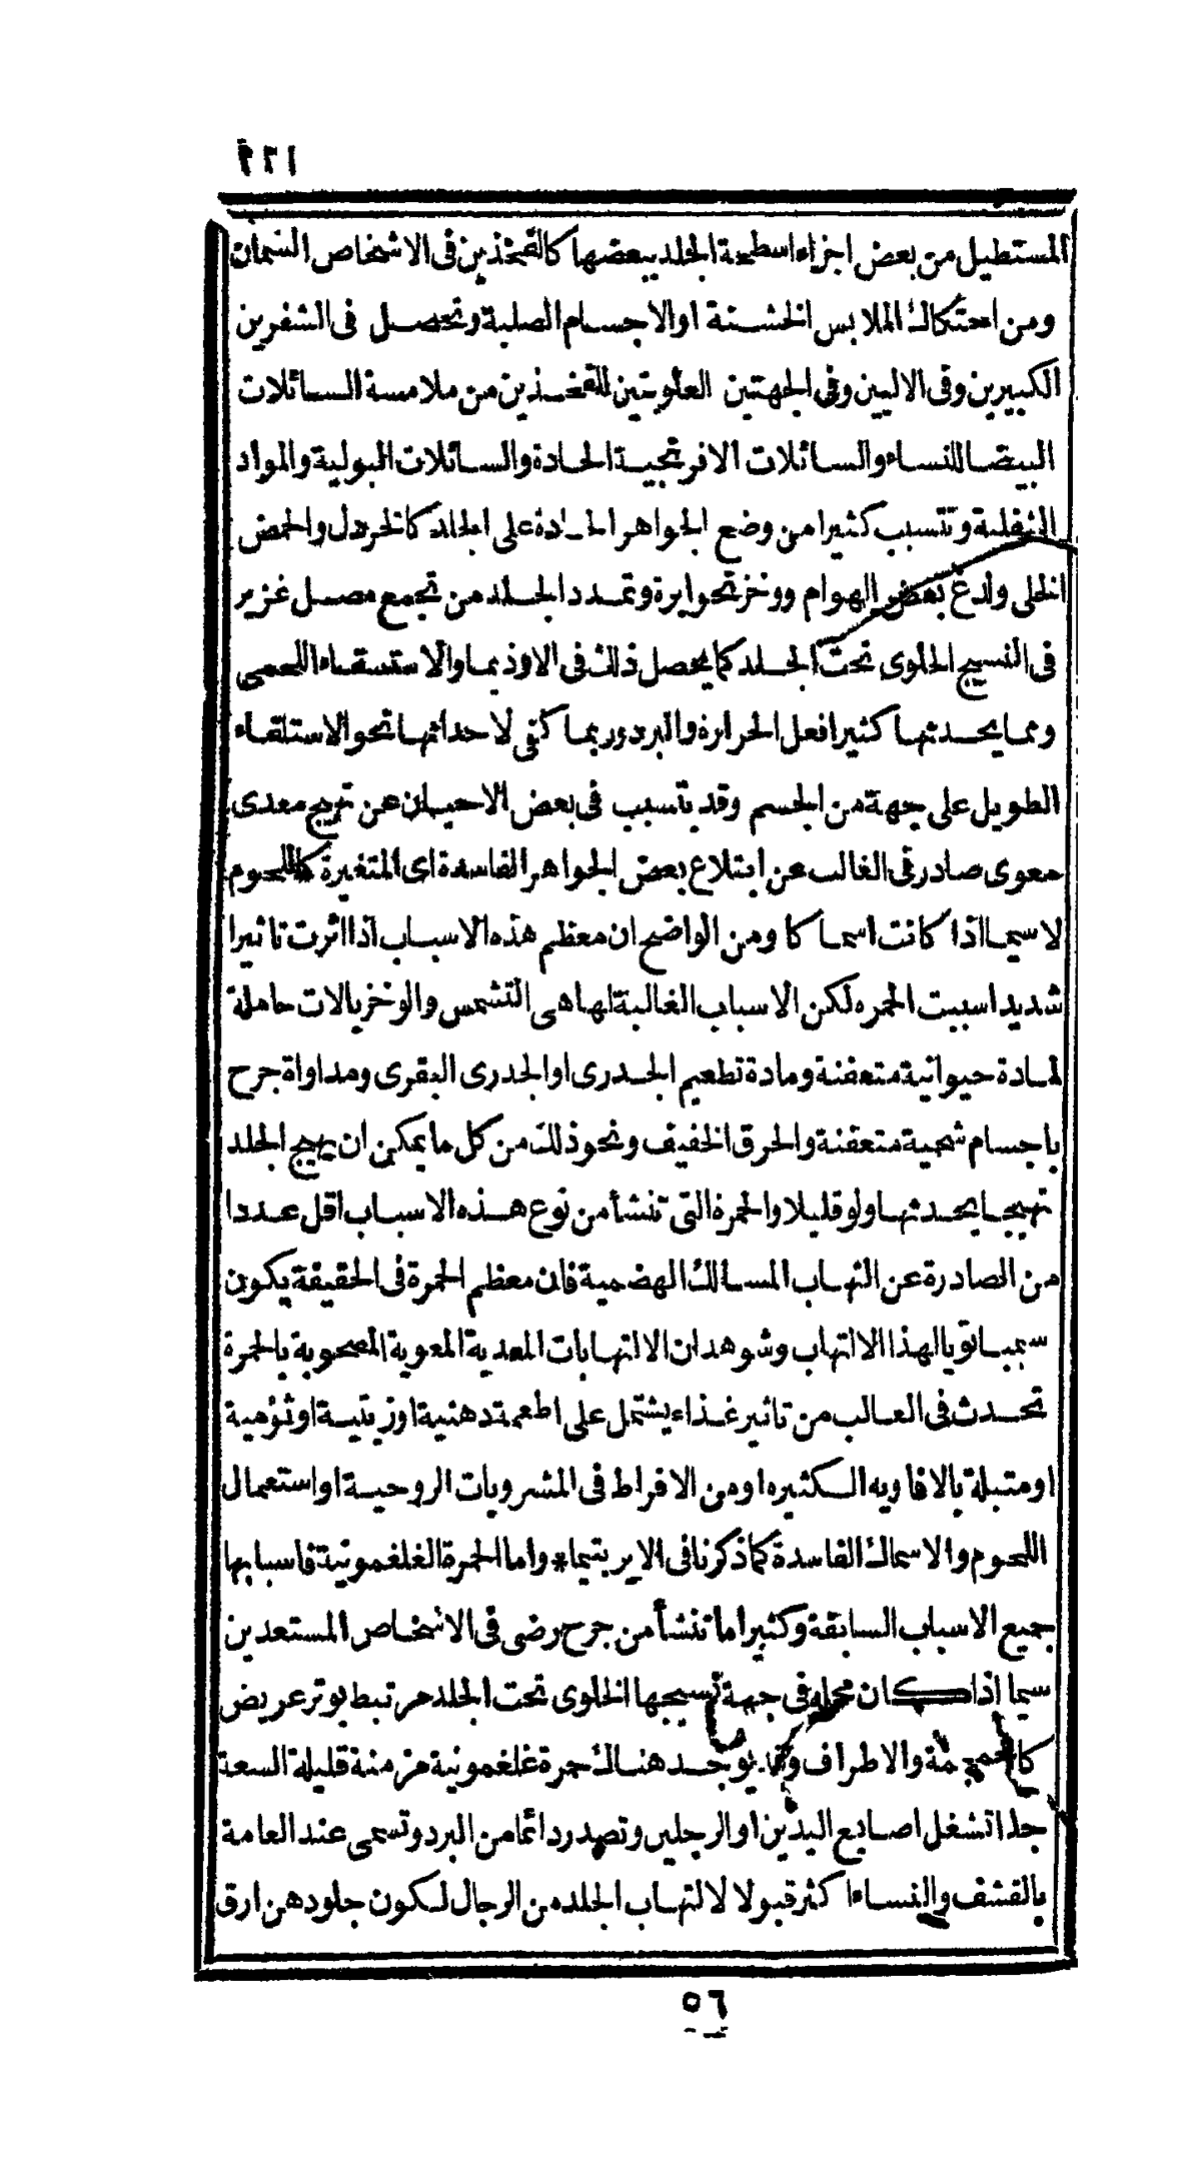 ١٢٩
المستطيل من بعض اجزاء اسطحة الجلد ببعضها كالفخذين فى الاشخاص السمان
ومن احتكاك الملابس الخشنة اوالاجسام الصلبة وتحصل فى الشفرين
الكبيرين وفى الاليين وفى الجهتين العلويتين للفخذين من ملامسة السائلات
البيضا للنساء والسائلات الافرنجية الحادة والسائلات البولية والمواد
الثفلية وتتسبب كثيرا من وضع الجواهر الحادة على الجلد كالخردل والحمض
الخلى ولدغ بعض الهوام ووخز نحو ابرة وتمدد الجلد من تجمع مصل غزير
فى النسيج الخلوى تحت الجلد كما يحصل ذلك فى الاوذيما والاستسقاء اللحمى
ومما يحدثها كثيرا فعل الحرارة والبرد وربما كفى لاحداثها نحو الاستلقاء
الطويل على جهة من الجسم وقد يتسبب فى بعض الاحيان عن تهيج معدى
معوى صادر فى الغالب عن ابتلاع بعض الجواهر الفاسدة اى المتغيرة كاللحوم
لا سيما اذا كانت اسماكا ومن الواضح ان معظم هذه الاسباب اذا اثرت تاثيرا
شديدا سببت الحمره لكن الاسباب الغالبة لها هى التشمس والوخز بالات حاملة
لمادة حيوانية متعفنة ومادة تطعيم الجدرى اوالجدرى البقرى ومداواة جرح
باجسام شحمية متعفنة والحرق الخفيف ونحو ذلك من كل ما يمكن ان يهيج الجلد
تهيجا يحدثها ولو قليلا والحمرة التى تنشأ من نوع هذه الاسباب اقل عددا
من الصادرة عن التهاب المسالك الهضمية فان معظم الحمرة فى الحقيقة يكون
سمباتويا لهذا الالتهاب وشوهد ان الالتهابات المعدية المعوية المصحوبة بالحمرة
تحدث فى الغالب من تاثير غذاء يشتمل على اطعمة دهنية اوزيتية اوثؤمية
اومتبلة بالافاويه الكثيره اومن الافراط فى المشروبات الروحية اواستعمال
اللحوم والاسماك الفاسدة كما ذكرنا فى الايريتيما* واما الحمرة الغلغمونية فاسبابها
جميع الاسباب السابقة وكثيرا ما تنشأ من جرح رضى فى الاشخاص المستعدين
سيما اذا كان محله فى جهة نسيجها الخلوى تحت الجلد مرتبط بوتر عريض
كالجمجمة والاطراف وقد يوجد هناك حمرة غلغمونية مزمنة قليلة السعة
جدا تشغل اصابع اليدين اوالرجلين وتصدر دائما من البرد وتسمى عند العامة
بالقشف والنساء اكثر قبولا لالتهاب الجلد من الرجال لكون جلودهن ارق
٥٦